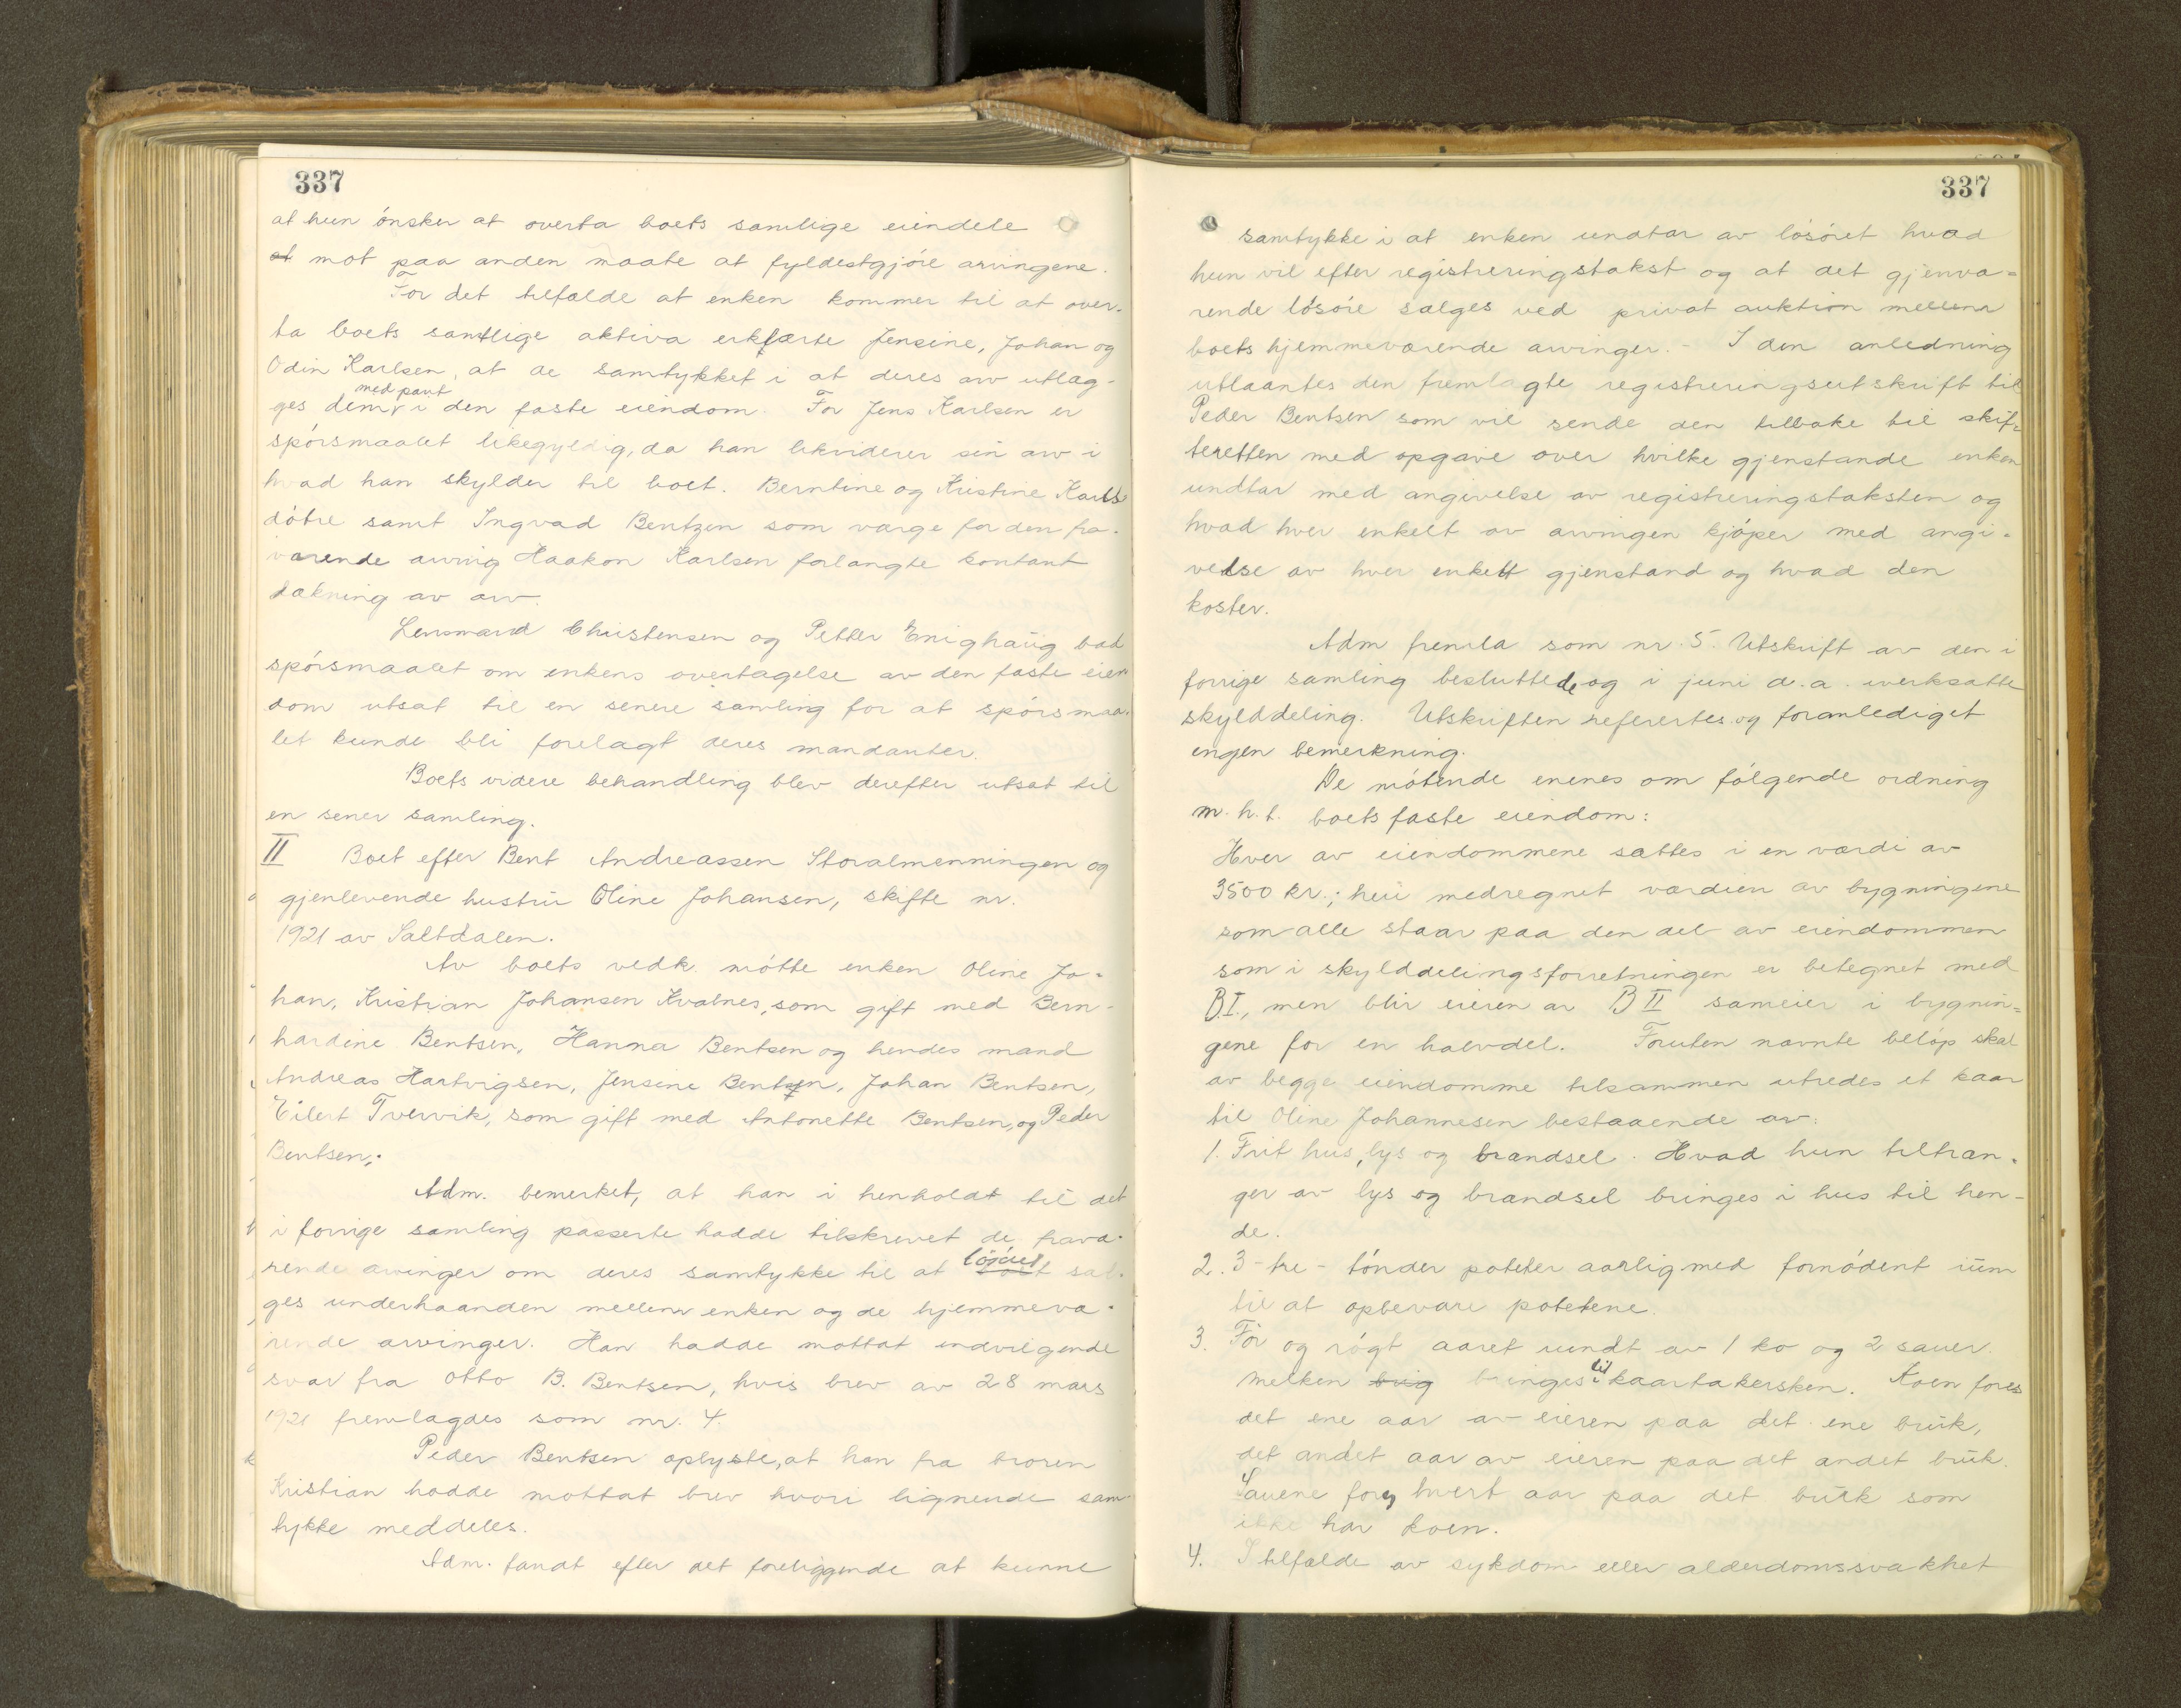 337
at hun ónsker at overta boets samlige eiendele
at mot paa anden maate at fyldestgjóre arvingene.
For det tilfælde at enken kommer til at over-
ta boets samtlige aktiva erklærte Jensine, Johan og
Odin Karlsen, at de samtykket i at deres arv utlæg-
med pant
ges dem i den faste eiendom. For Jens Karlsen er
spórsmaalet likegyldig, da han likviderer sin arv i
hvad han skylder til boet. Berntine og Kristine Karls
dótre samt Ingvad Bentzen som værge for den fra-
værende arving Haakon Karlsen forlangte kontant
dækning av arv.
Lensmand Christensen og Petter Enighaug bad
spórsmaalet om enkens overtagelse av den faste eien
dom utsat til en senere samling for at spórsmaa-
let kunde bli forelagt deres mandanter.
Boets videre behandling blev derefter utsat til
en sener samling.
II Boet efter Bent Andreassen Storalmenningen og
gjenlevende hustru Oline Johansen, skifte nr.
1921 av Saltdalen.
Av boets vedk. mótte enken Oline Jo-
han, Kristian Johansen Kvalnes, som gift med Bern-
hardine Bentsen, Hanna Bentsen og hendes mand
Andreas Hartvigsen, Jensine Bentsen, Johan Bentsen,
Eilert Tverrvik, som gift med Antonette Bentsen, og Peder
Bentsen;
Adm. bemerket, at han i henholdt til det
i forrige samling passerte hadde tilskrevet de fravæ-
rende arvinger om deres samtykke til at lósóret sæl-
ges underhaanden mellem enken og de hjemmevæ-
rende arvinger. Han hadde mottat indvilgende
svar fra Otto B. Bentsen, hvis brev av 28 mars
1921 fremlagdes som nr. 4.
Peder Bentsen oplyste, at han fra broren
Kristian hadde mottat brev hvori lignende sam-
tykke meddeles.
Adm. fandt efter det foreliggende at kunne
337
samtykke i at enken undtar av lósóret hvad
hun vil efter registreringstakst og at det gjenvæ-
rende lósóre sælges ved privat auktion mellem
boets hjemmeværende arvinger. - I den anledning
utlaantes den fremlagte registreringsutskrift til
Peder Bentsen som vil sende den tilbake til skif-
teretten med opgave over hvilke gjenstande enken
undtar med angivelse av registreringstaksten og
hvad hver enkelt av arvingen kjóper med angi-
velse av hver enkelt gjenstand og hvad den
koster.
Adm fremla som nr. 5. Utskrift av den i
forrige samling besluttede og i juni d. a. iverksatte
skylddeling. Utskriften referertes og foranlediget
ingen bemerkning.
De mótende enenes om fólgende ordning
m. h. t. boets faste eiendom:
Hver av eiendommene sættes i en værdi av
3500 kr.; heri medregnet værdien av bygningene
som alle staar paa den del av eiendommen
som i skylddelingsforretningen er betegnet med
B.I., men blir eieren av B II sameier i bygnin-
gene for en halvdel. Foruten nævnte belóp skal
av begge eiendomme tilsammen utredes et kaar
til Oline Johannesen bestaaende av:
1. Frit hus, lys og brændsel. Hvad hun tiltræn-
ger av lys og brændsel bringes i hus til hen-
de.
2. 3 - tre - tónder poteter aarlig med fornódent rum
til at opbevare potetene.
3. Fór og rógt aaret rundt av 1 ko og 2 sauer.
Melken brig bringes til kaartakersken. Koen fores
det ene aar av eieren paa det ene bruk,
det andet aar av eieren paa det andet bruk.
Sauene fores hvert aar paa det bruk som
ikke har koen.
4. I tilfælde av sykdom eller alderdomssvakhet